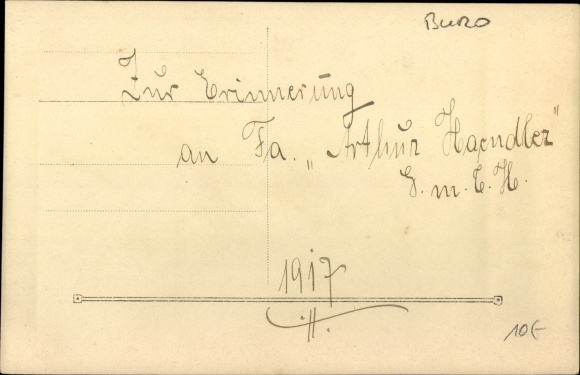 Buro
Zur Erinnerung
an Fa. „Arthur Haendler"
G.m.b.H.
1917
10€